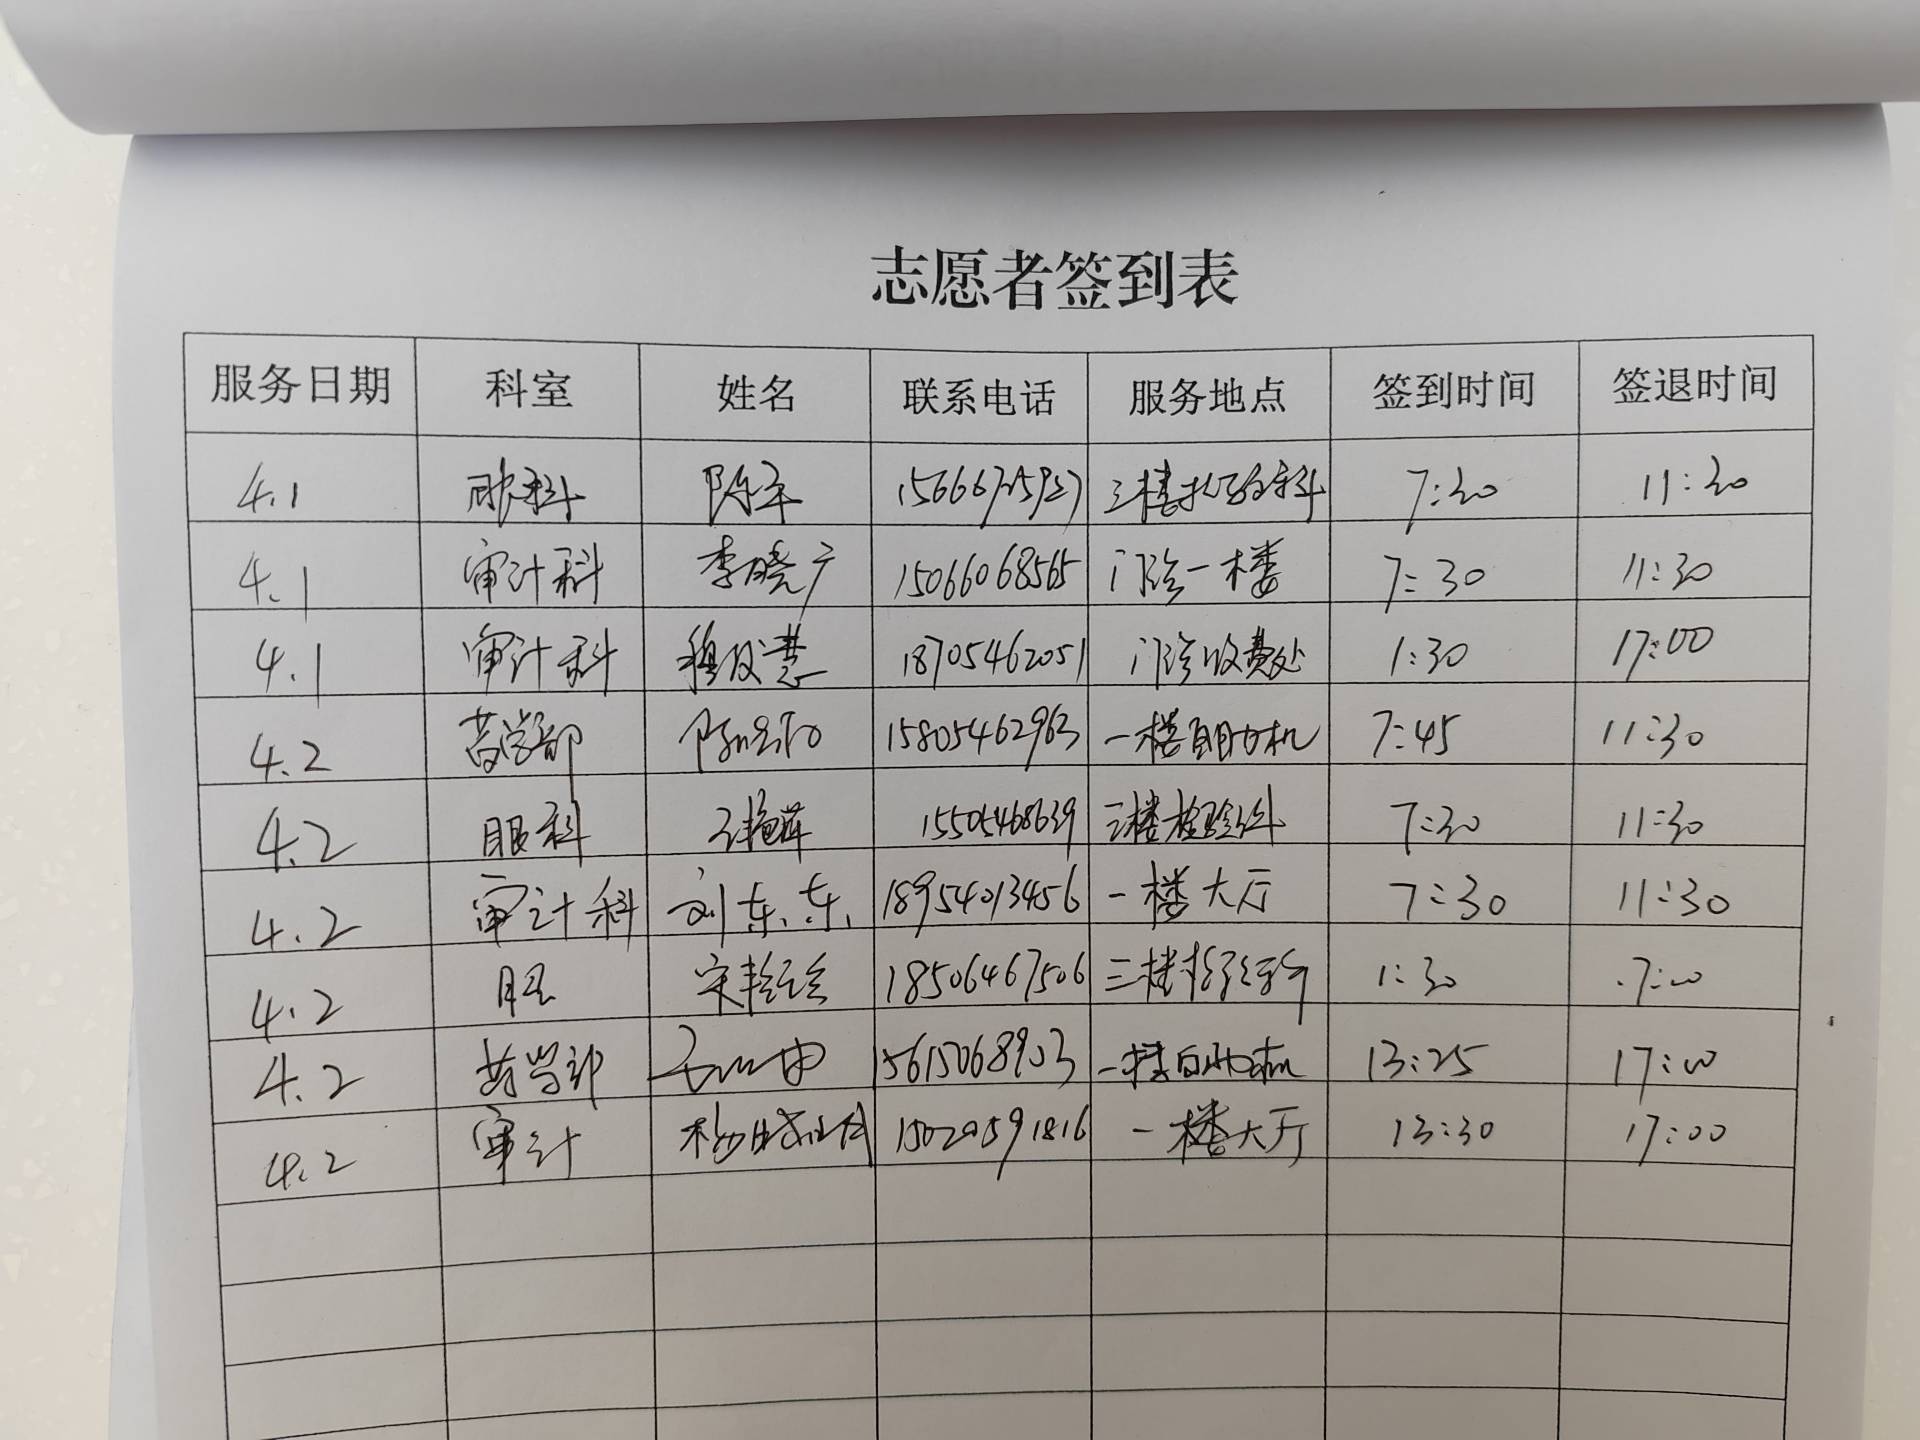 志愿者签到表
服务日期 科室 姓名 联系电话 服务地点 签到时间 签退时间
4.1 眼科 陈军 三楼检验科 7:30 11:30
4.1 审计科 李晓广 15066068565 门诊一楼 7:30 11:30
4.1 审计科 18705462051 门诊收费处 1:30 17:00
4.2 药学部 15805462963 一楼自助机 7:45 11:30
4.2 眼科 15505468639 三楼检验科 7:30 11:30
4.2 审计科 刘东东 18954013456 一楼大厅 7:30 11:30
4.2 18506467506 三楼 1:30
4.2 药学部 15615068903 一楼自助机 13:25 17:00
4.2 审计 15020591816 一楼大厅 13:30 17:00